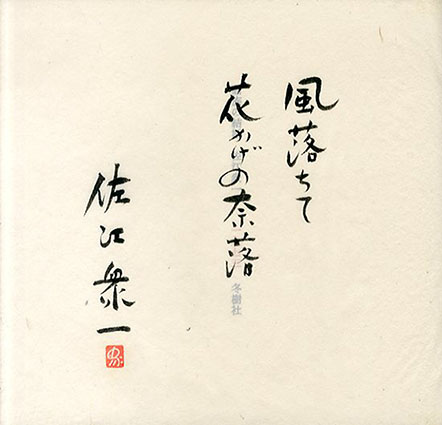 風落ちて
花かげの奈落
冬樹社
佐江衆一